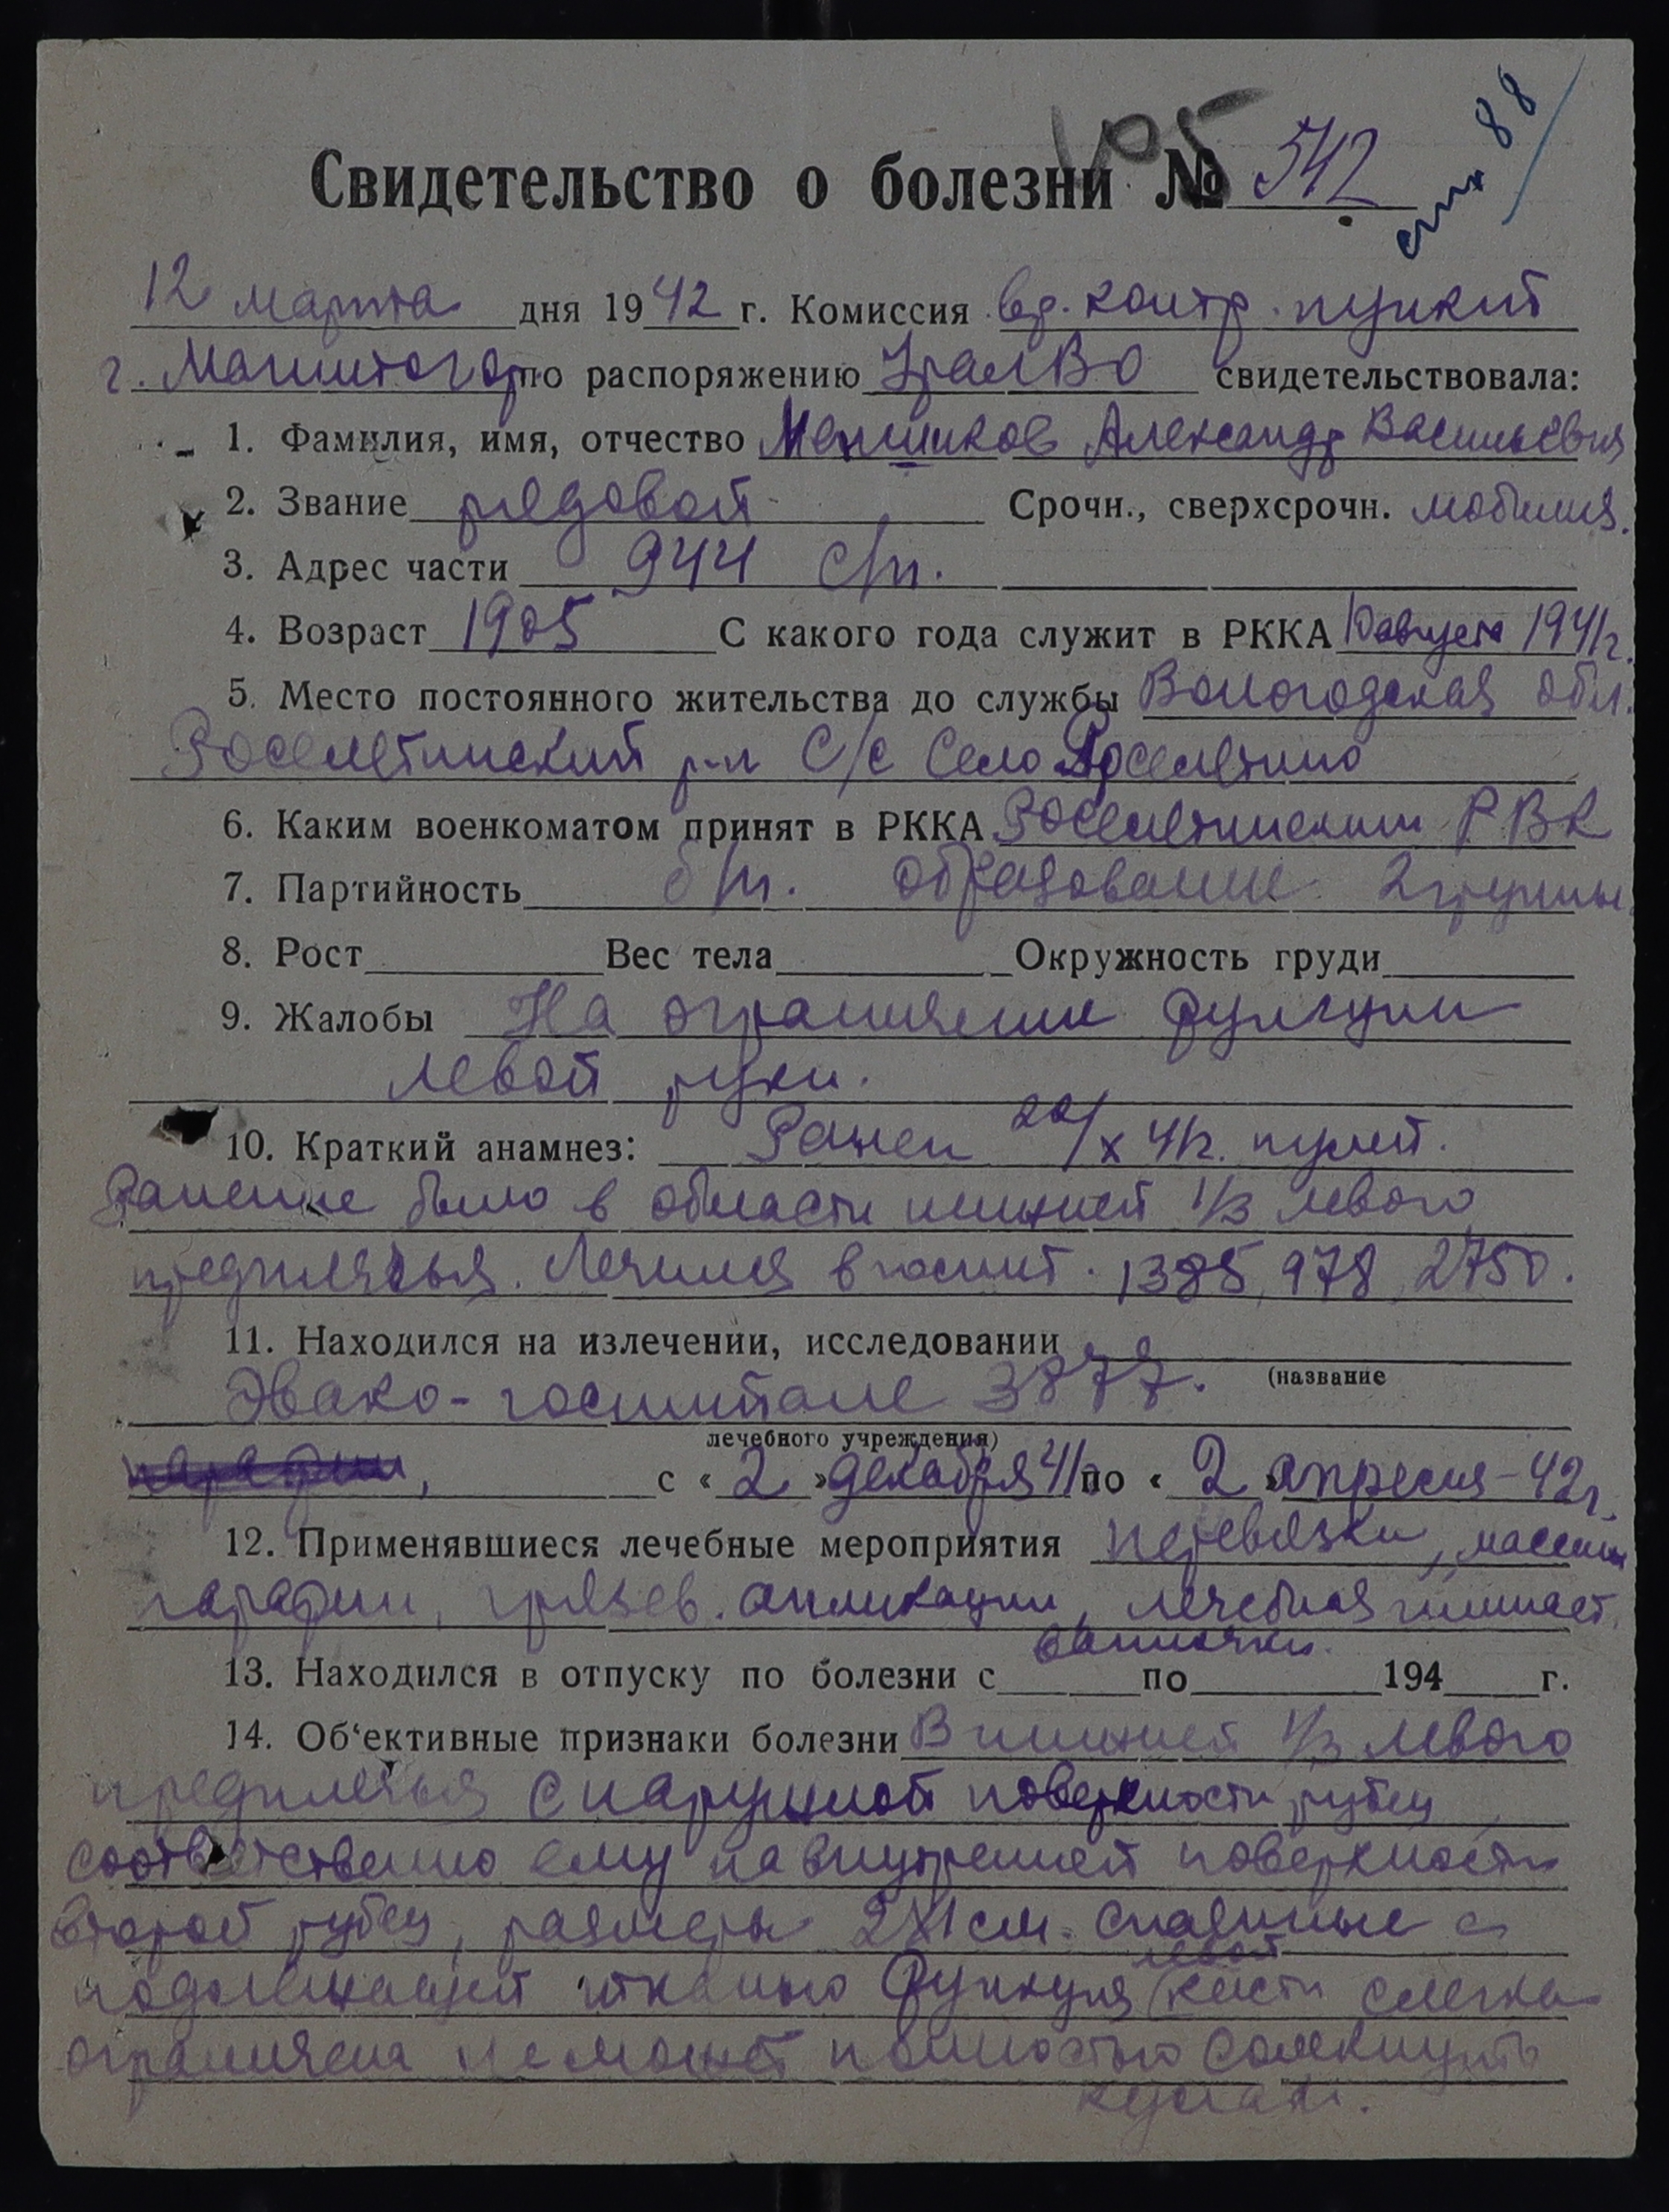 105
ст 88
Свидетельство о болезни № 542
12 марта дня 1942 г. Комиссия контр. пункт
г. Магнитогор по распоряжению УралВО свидетельствовала:
1. Фамилия, имя, отчество Меншиков Александр Васильевич
2. Звание рядовой Срочн., сверхсрочн. мобилиз.
3. Адрес части 944 с/п.
4. Возраст 1905 С какого года служит в РККА 10 августа 1941 г.
5. Место постоянного жительства до службы Вологодская обл.
Рослятинский р-н С/с Село Рослятино
6. Каким военкоматом принят в РККА Рослятинским РВК
7. Партийность б/п. образование 2 группы
8. Рост Вес тела Окружность груди
9. Жалобы На ограничение функции
левой руки.
10. Краткий анамнез: Ранен 22/X 41г. пулей.
Ранение было в области нижней 1/3 левого
предплечья. Лечился в госпит. 1385, 978, 2750.
11. Находился на излечении, исследовании
(название
Эвако-госпитале 3877.
лечебного учреждения)
парафин, с «2» декабря 41 г по «2» апреля-42 г.
12. Применявшиеся лечебные мероприятия перевязки, массаж
парафин, грязев. апликации, лечебная гимнаст.
ванночки.
13. Находился в отпуску по болезни с по 194 г.
14. Об'ективные признаки болезни В нижней 1/3 левого
предплечья с наружной поверхности рубец
соответственно ему на внутренней поверхности
второй рубец, размеры 2х1 см. спаянные с
левой
подлежащей тканью Функция кисти слегка
ограничена не может полностью сомкнуть
кулак.